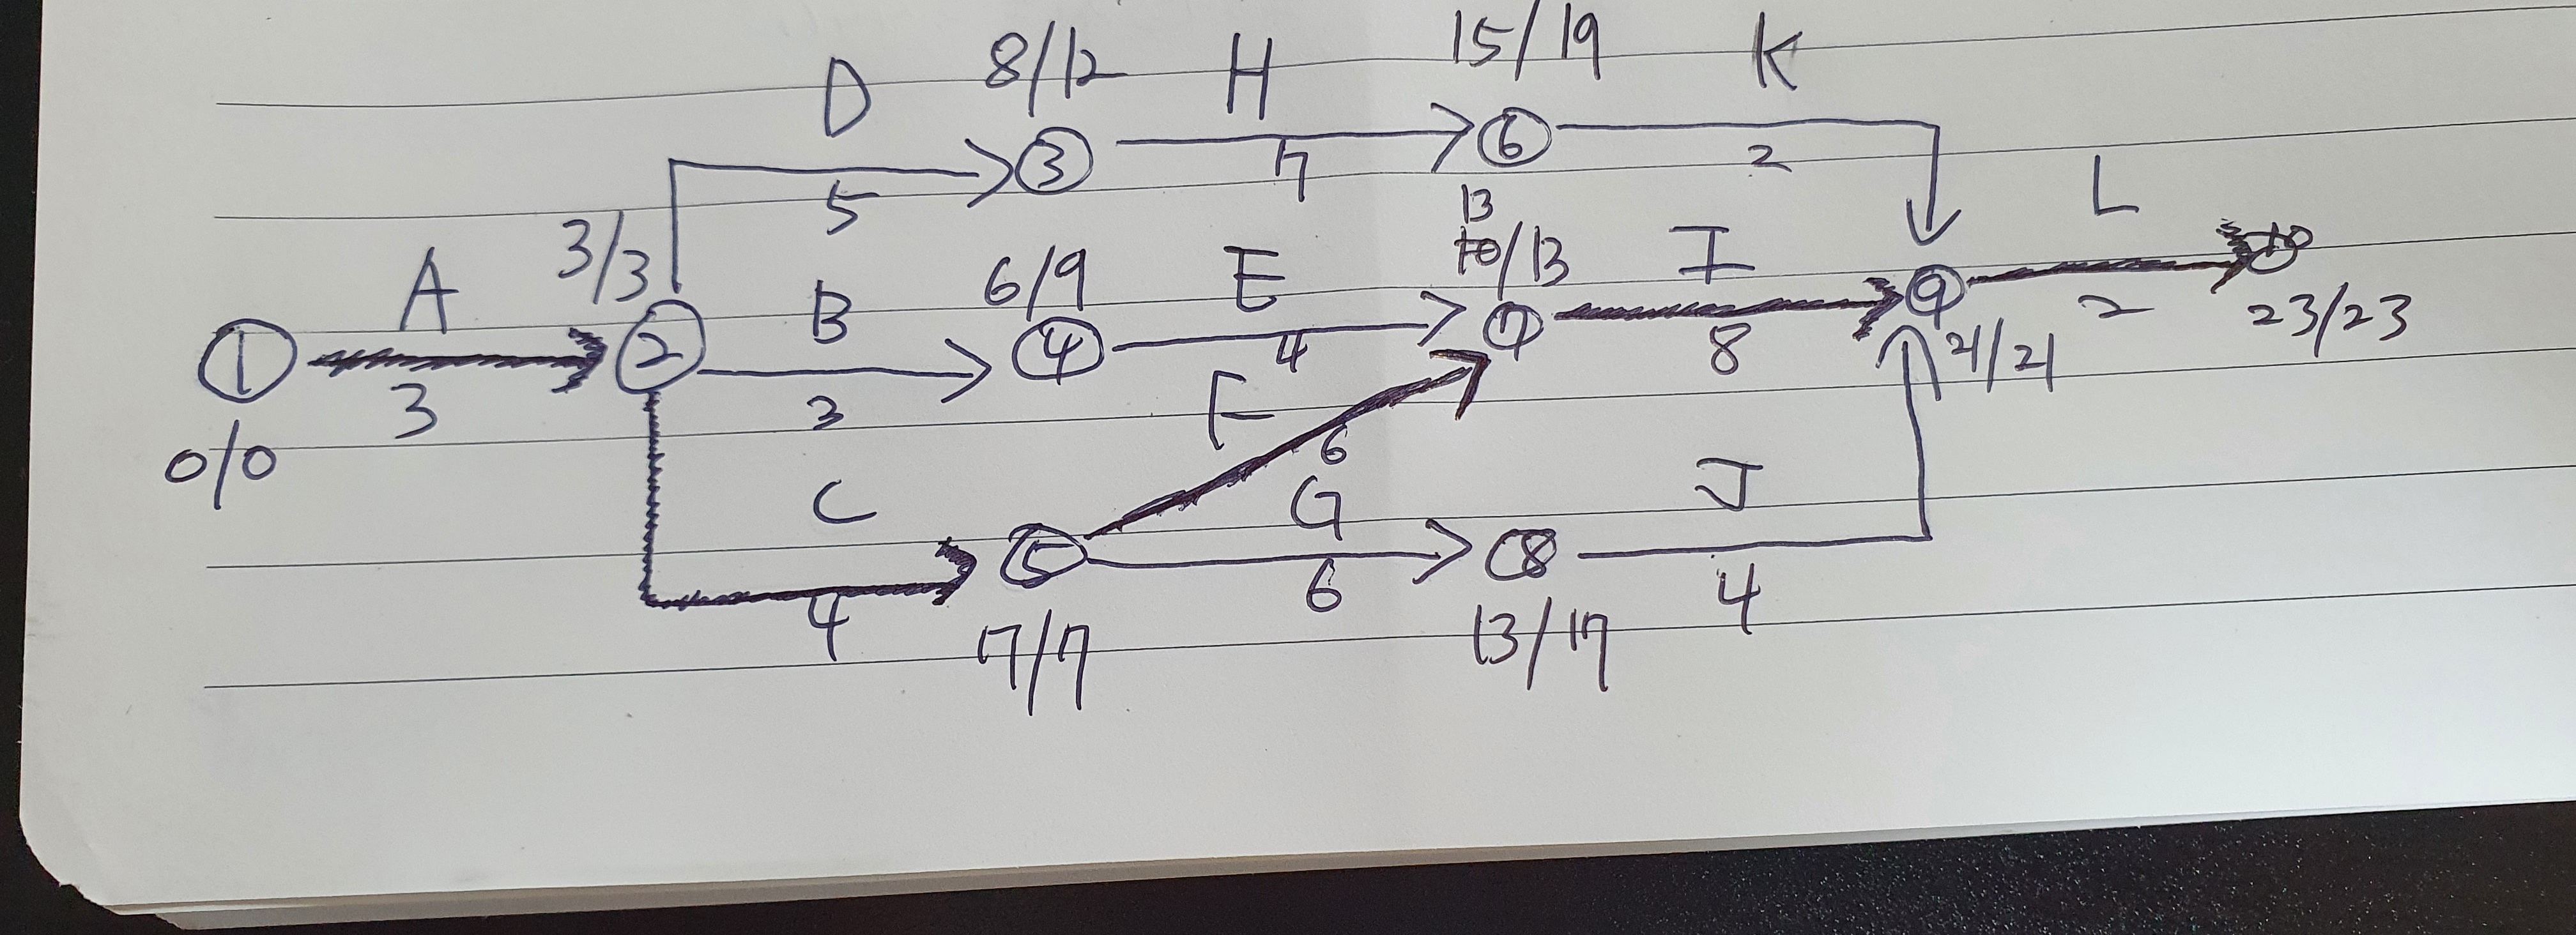 8/12 15/19
D H K
③ ⑥
5 7 2
13
L
3/3 10/13
A B 6/9 E I 10
① ② ④ ⑦ ⑨
3 3 4 8 2 23/23
F 21/21
0/0 6
C G J
⑤ ⑧
4 6 4
7/7 13/17